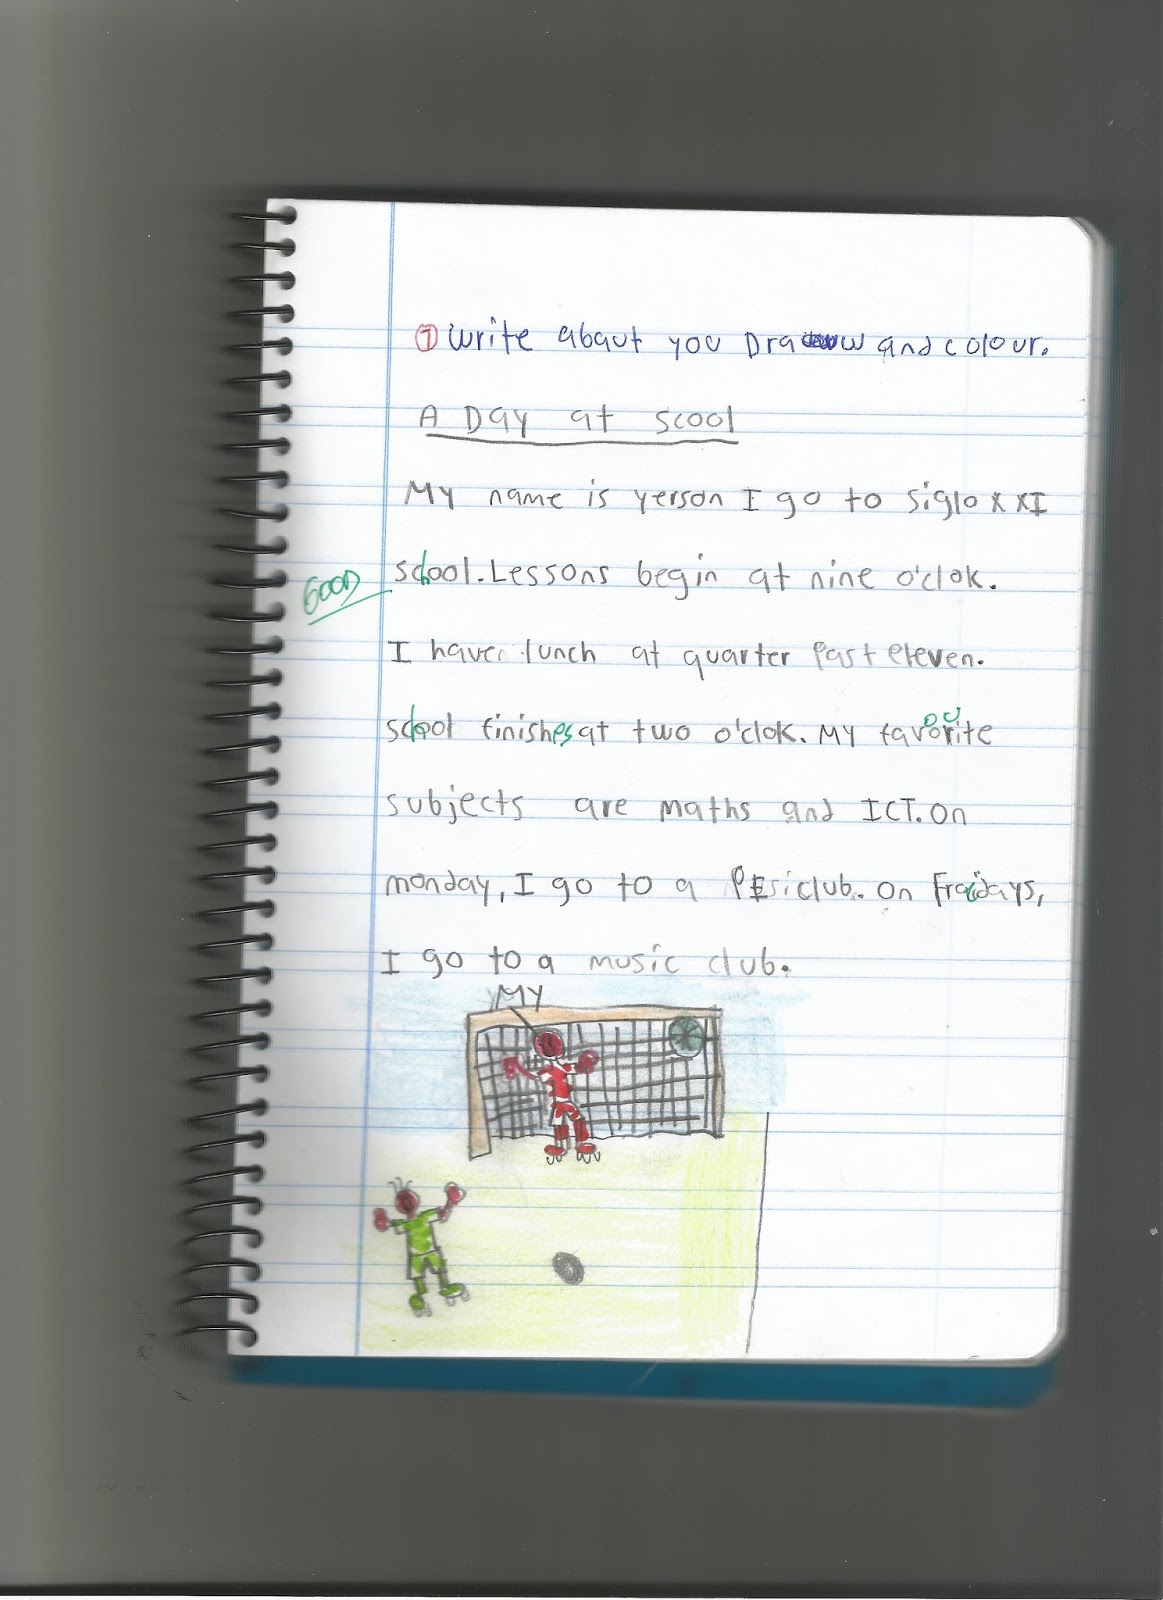 7 Write abaut you Draw and colour.
A Day at scool
My name is yerson I go to siglo XXI
GOOD
school. Lessons begin at nine o'clok.
I have lunch at quarter past eleven.
school finishes at two o'clok. My favourite
subjects are maths and ICT. On
monday, I go to a club. On Fridays,
I go to a music club.
MY